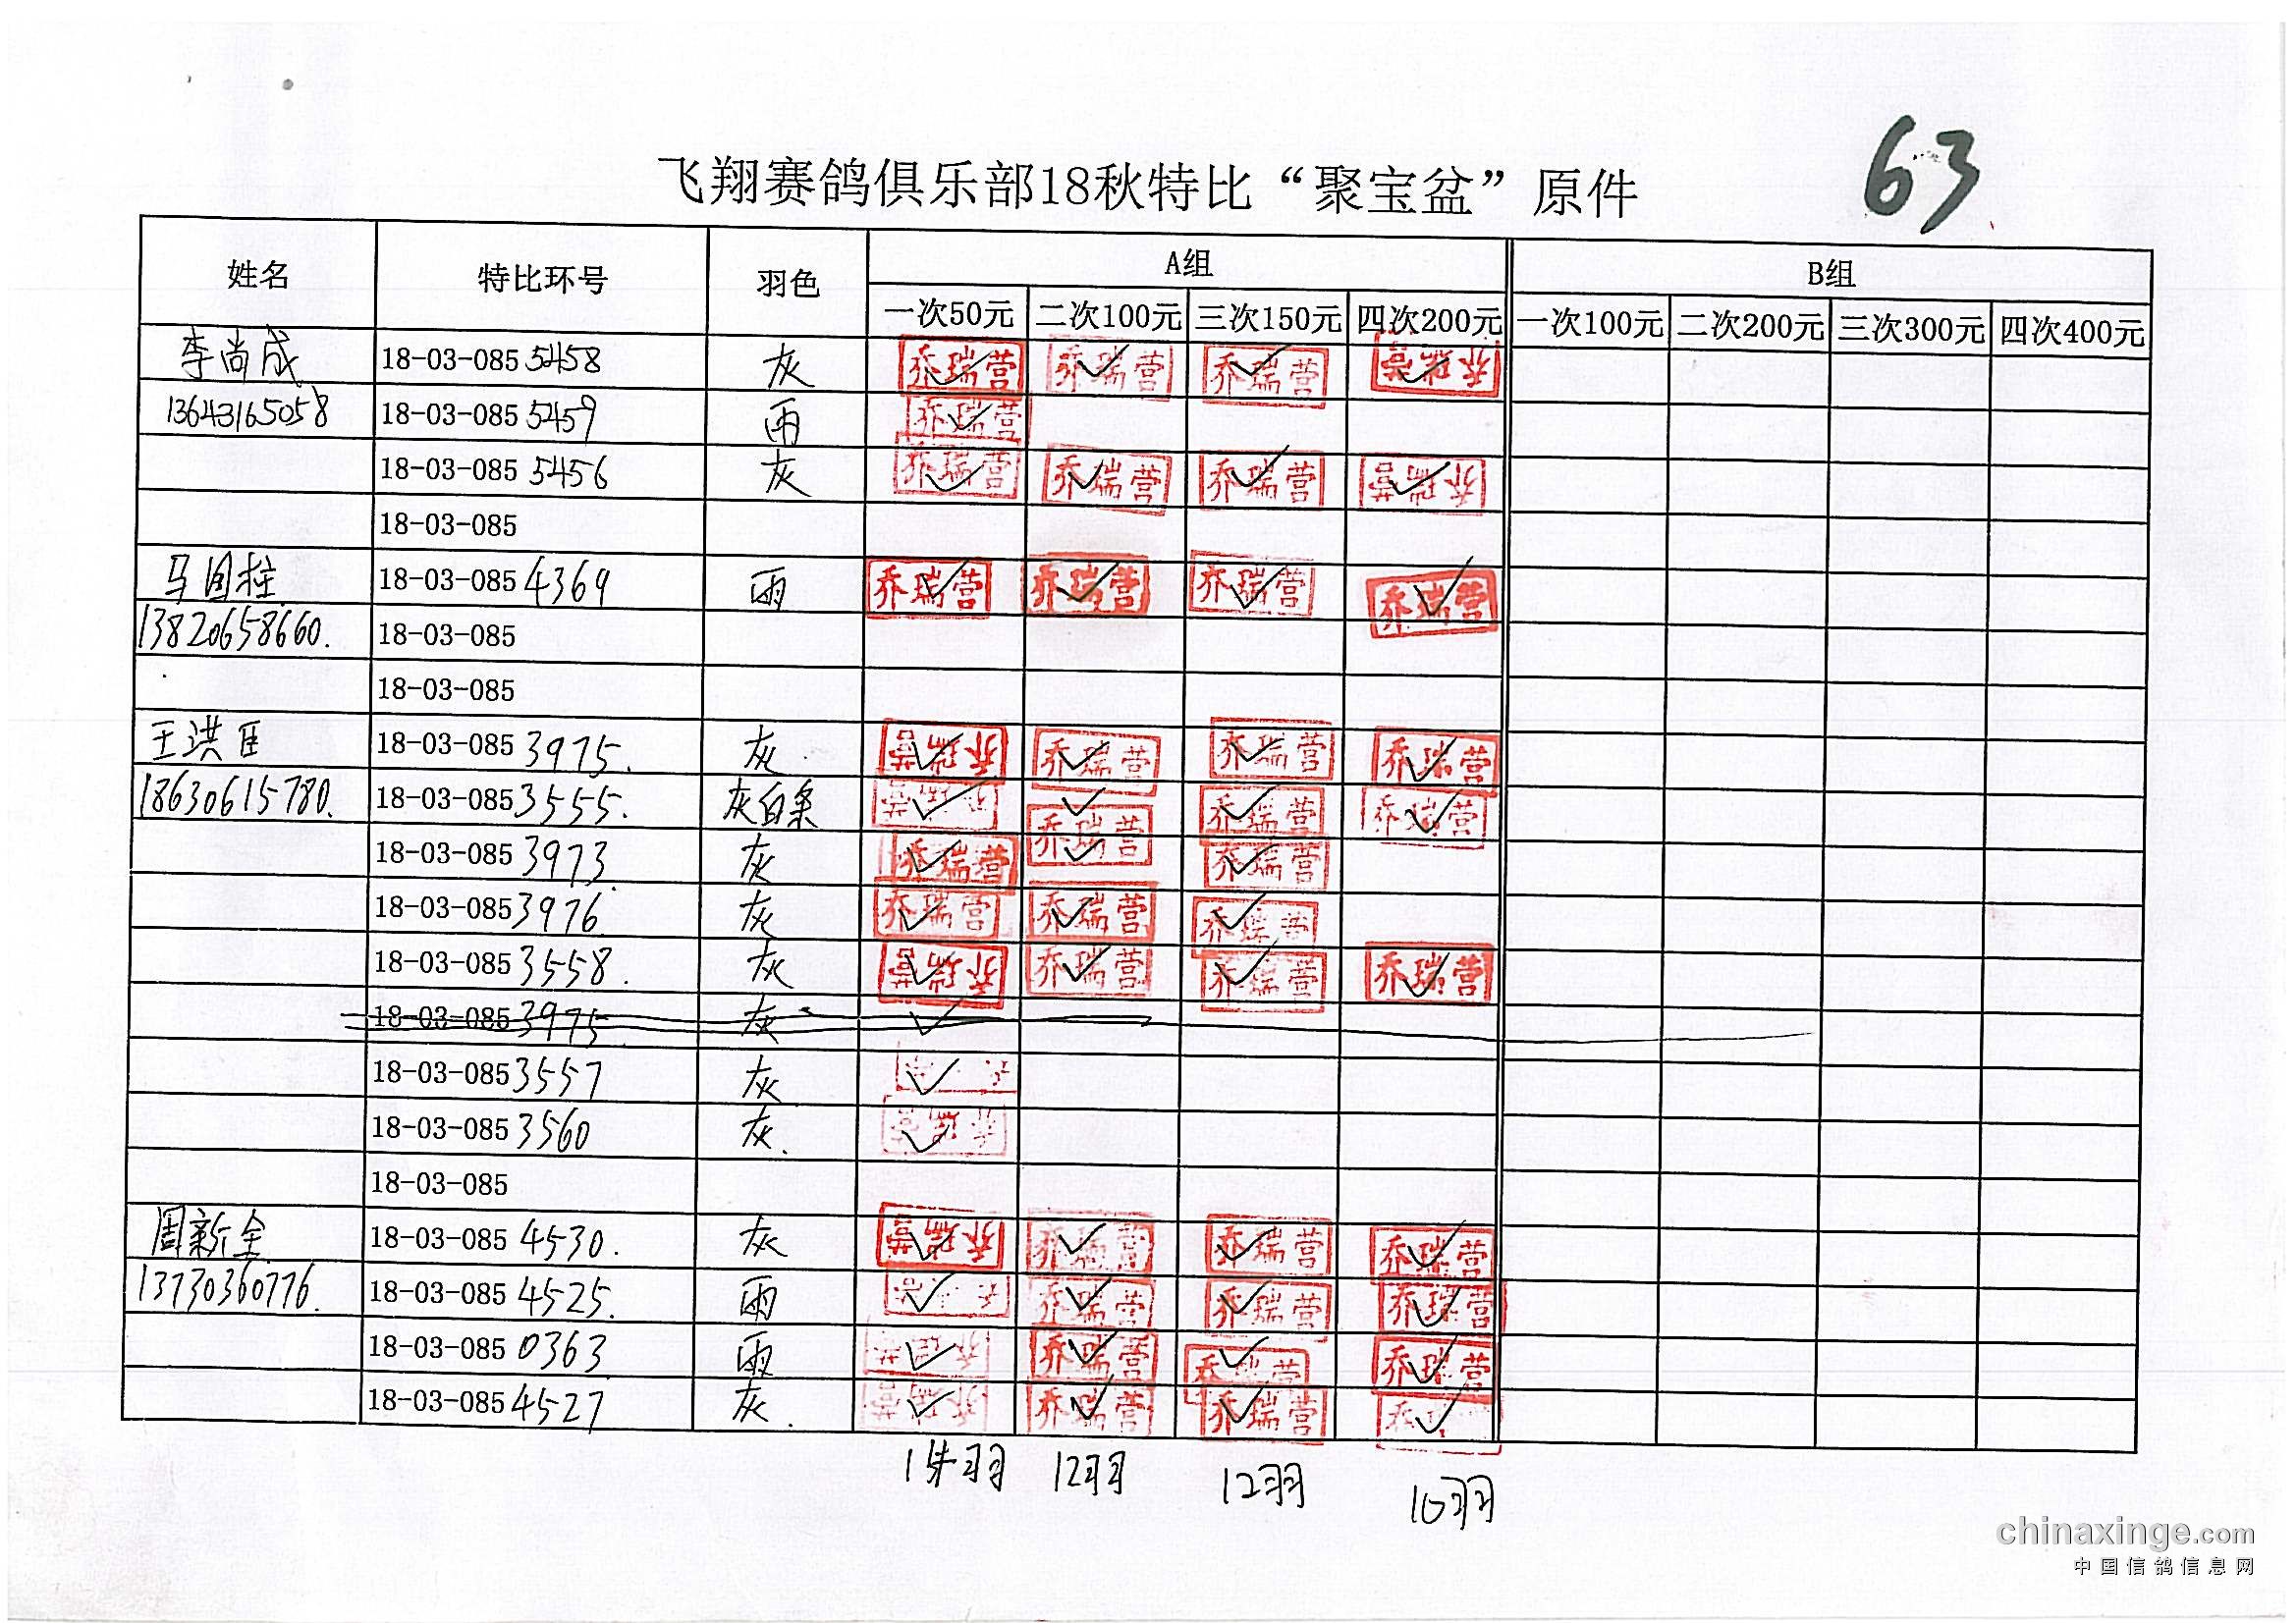 63
飞翔赛鸽俱乐部18秋特比“聚宝盆”原件
姓名 特比环号 羽色 A组 B组
一次50元 二次100元 三次150元 四次200元 一次100元 二次200元 三次300元 四次400元
李尚成 18-03-085 5458 灰 ✓乔瑞营 ✓乔瑞营 ✓乔瑞营 ✓乔瑞营
13643165058 18-03-085 5459 雨 ✓乔瑞营
18-03-085 5456 灰 ✓乔瑞营 ✓乔瑞营 ✓乔瑞营 ✓乔瑞营
18-03-085
马国柱 18-03-085 4369 雨 ✓乔瑞营 ✓乔瑞营 ✓乔瑞营 ✓乔瑞营
13820658660. 18-03-085
18-03-085
王洪臣 18-03-085 3975. 灰. ✓乔瑞营 ✓乔瑞营 ✓乔瑞营 ✓乔瑞营
18630615780. 18-03-085 3555. 灰白条 ✓乔瑞营 ✓乔瑞营 ✓乔瑞营 ✓乔瑞营
18-03-085 3973. 灰 ✓乔瑞营 ✓ ✓乔瑞营
18-03-085 3976. 灰 ✓乔瑞营 ✓乔瑞营 ✓乔瑞营
18-03-085 3558. 灰 ✓乔瑞营 ✓乔瑞营 ✓乔瑞营 ✓乔瑞营
18-03-085 3975. 灰 ✓
18-03-085 3557 灰 ✓
18-03-085 3560 灰. ✓乔瑞营
18-03-085
周新全 18-03-085 4530. 灰 ✓乔瑞营 ✓乔瑞营 ✓乔瑞营 ✓乔瑞营
13730360776. 18-03-085 4525. 雨 ✓ ✓乔瑞营 ✓乔瑞营 ✓乔瑞营
18-03-085 0363 雨 ✓乔瑞营 ✓乔瑞营 ✓乔瑞营 ✓乔瑞营
18-03-085 4527 灰. ✓乔瑞营 ✓乔瑞营 ✓乔瑞营 ✓
12羽 12羽 10羽
chinaxinge.com
中国信鸽信息网